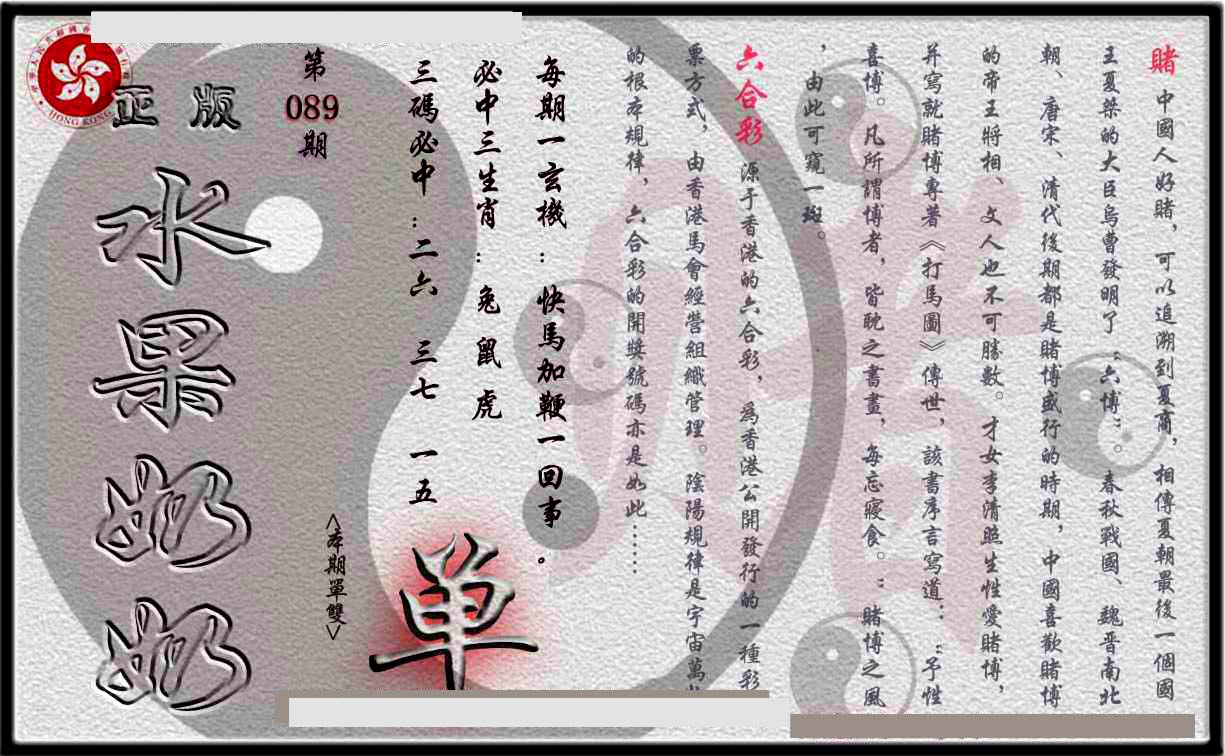 賭 中國人好賭，可以追溯到夏商，相傳夏朝最後一個國
王夏桀的大臣烏曹發明了“六博”。春秋戰國、魏晋南北
朝、唐宋、清代後期都是賭博盛行的時期，中國喜歡賭博
的帝王將相、文人也不可勝數。才女李清照生性愛賭博，
并寫就賭博專著《打馬圖》傳世，該書序言寫道：“予性
喜博。凡所謂博者，皆耽之書畫，每忘寢食。”賭博之風
，由此可窺一斑。
六合彩 源于香港的六合彩，為香港公開發行的一種彩
票方式，由香港馬會經營組織管理。陰陽規律是宇宙萬
的根本規律，六合彩的開獎號碼亦是如此……
每期一玄機：快馬加鞭一回事。
必中三生肖：兔 鼠 虎
三碼必中：二六 三七 一五
單
<本期單雙>
第
089
期
正版
水果奶奶
HONG KONG